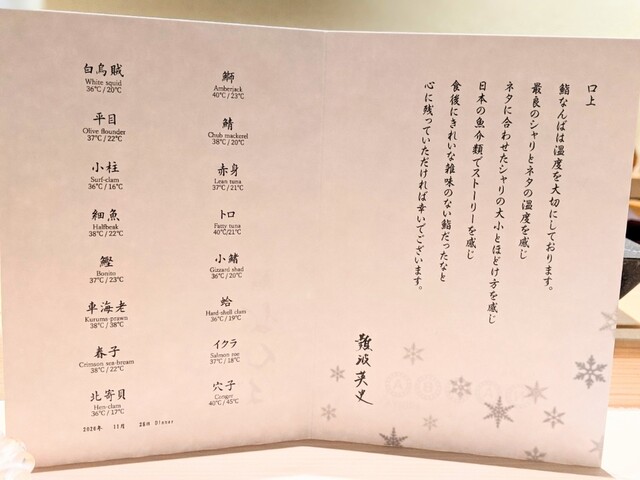 白烏賊
White squid
36℃/20℃
平目
Olive flounder
37℃/22℃
小柱
Surf-clam
36℃/16℃
細魚
Halfbeak
38℃/22℃
鰹
Bonito
37℃/23℃
車海老
Kuruma-prawn
38℃/38℃
春子
Crimson sea-bream
38℃/22℃
北寄貝
Hen-clam
36℃/17℃
2020年 11月 28日 Dinner
鰤
Amberjack
40℃/23℃
鯖
Chub mackerel
38℃/20℃
赤身
Lean tuna
37℃/21℃
トロ
Fatty tuna
40℃/21℃
小鰭
Gizzard shad
36℃/20℃
蛤
Hard-shell clam
36℃/19℃
イクラ
Salmon roe
37℃/18℃
穴子
Conger
40℃/45℃
口上
鮨なんばは温度を大切にしております。
最良のシャリとネタの温度を感じ
ネタに合わせたシャリの大小とほどけ方を感じ
日本の魚介類でストーリーを感じ
食後にきれいな雑味のない鮨だったなと
心に残っていただければ幸いでございます。
難波英史